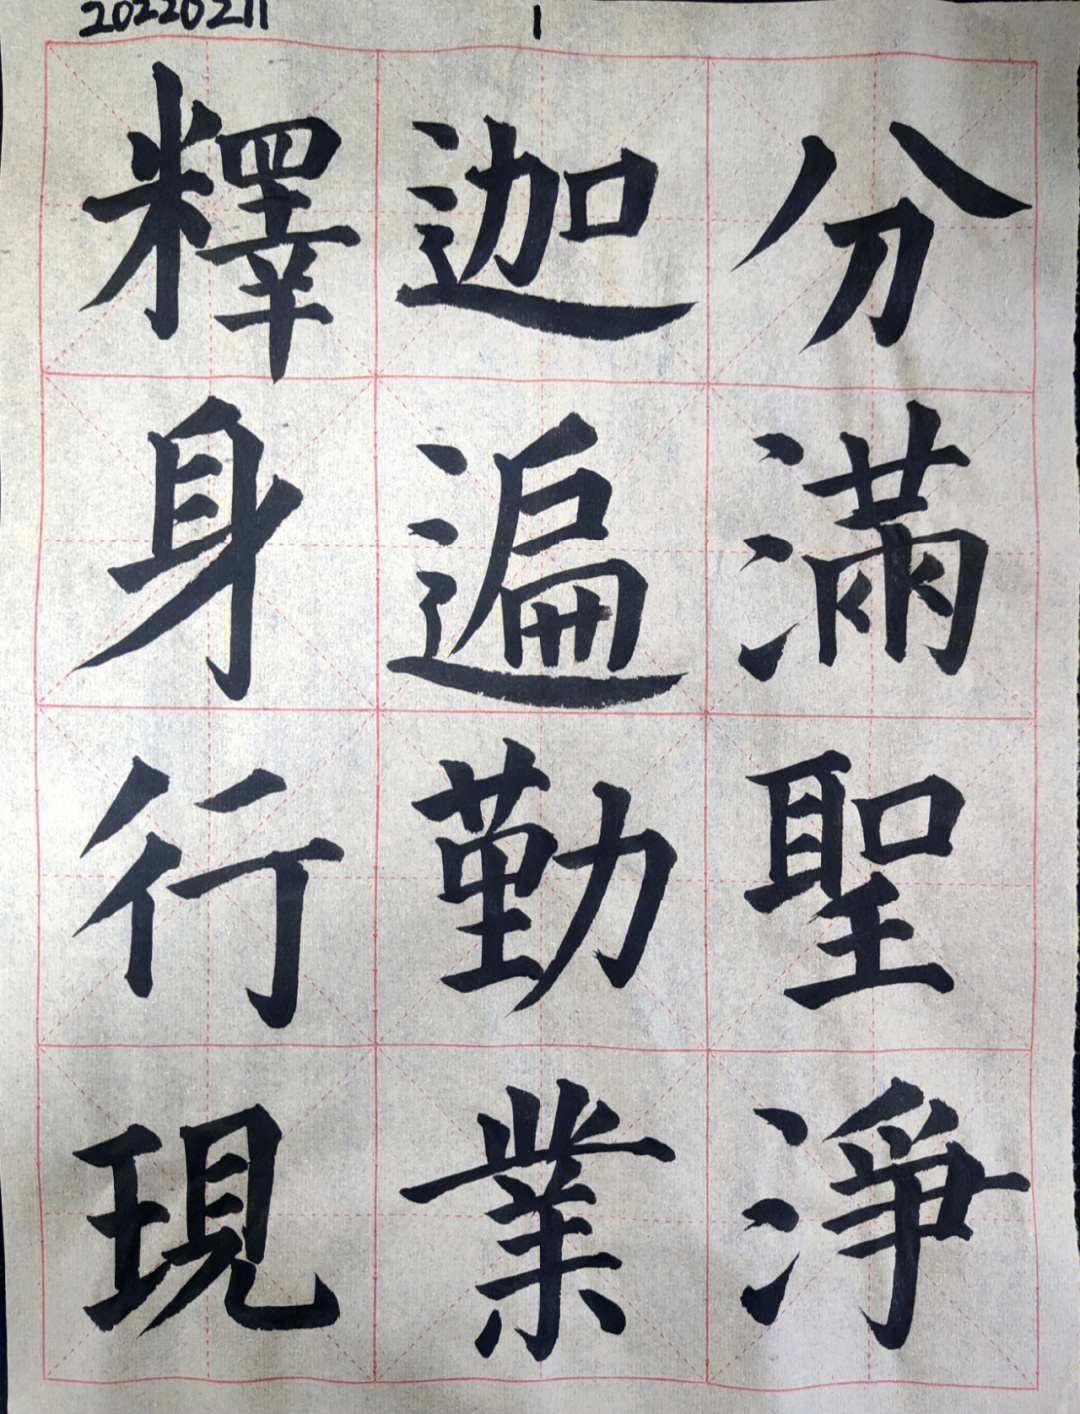 20220211 1
釋迦分
身遍滿
行勤聖
現業淨